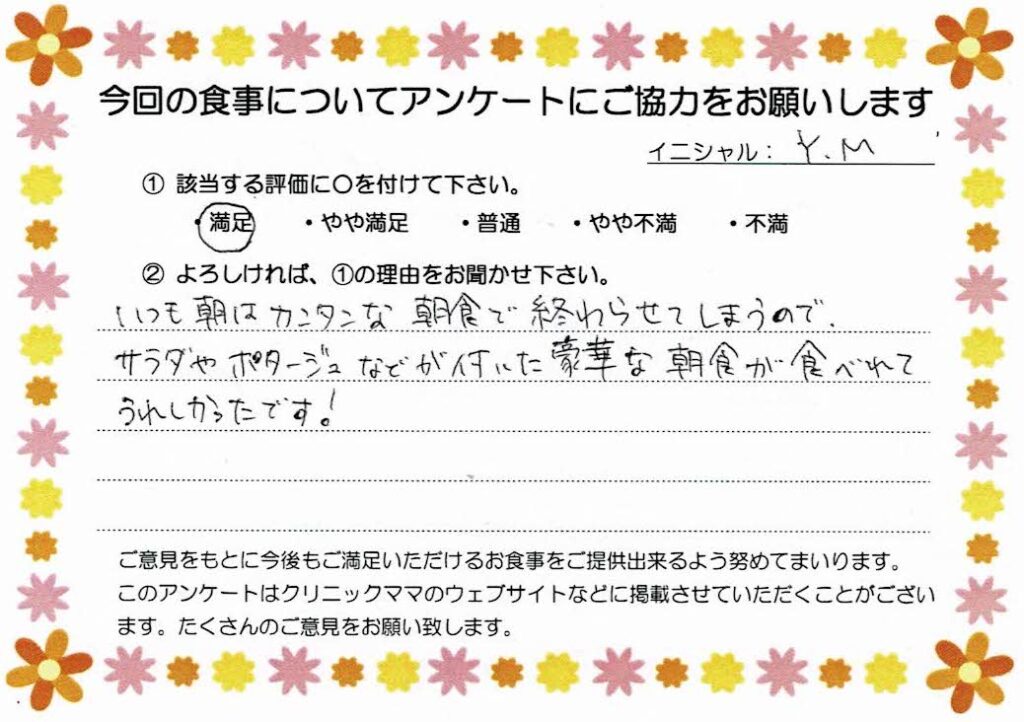 今回の食事についてアンケートにご協力をお願いします
イニシャル： Y.M
① 該当する評価に○を付けて下さい。
・満足 ・やや満足 ・普通 ・やや不満 ・不満
② よろしければ、①の理由をお聞かせ下さい。
いつも朝はカンタンな朝食で終わらせてしまうので、
サラダやポタージュなどが付いた豪華な朝食が食べれて
うれしかったです！
ご意見をもとに今後もご満足いただけるお食事をご提供出来るよう努めてまいります。
このアンケートはクリニックママのウェブサイトなどに掲載させていただくことがござい
ます。たくさんのご意見をお願い致します。